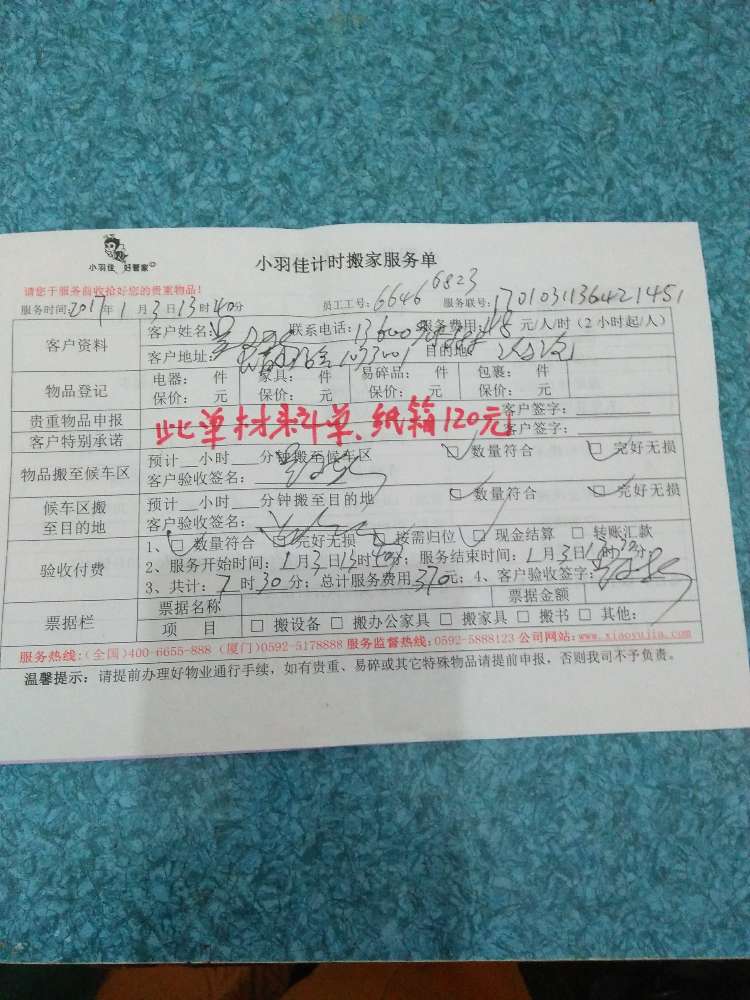 小羽佳 好管家
小羽佳计时搬家服务单
请您于服务前收拾好您的贵重物品!
服务时间:2017年1月3日13时40分 员工工号:6646 6823 服务联号:1701031136421451
客户资料
客户姓名: 联系电话: 服务费用: 元/人/时(2小时起/人)
客户地址: 目的地:
物品登记
电器: 件 家具: 件 易碎品: 件 包裹: 件
保价: 元 保价: 元 保价: 元 保价: 元
贵重物品申报 客户签字:
客户特别承诺 客户签字:
此单材料单、纸箱120元
物品搬至候车区
预计__小时__分钟搬至候车区 数量符合 完好无损
客户验收签名:
候车区搬至目的地
预计__小时__分钟搬至目的地 数量符合 完好无损
客户验收签名:
验收付费
1、数量符合 完好无损 按需归位 现金结算 转账汇款
2、服务开始时间:1月3日13时40分; 服务结束时间:1月3日 时 分;
3、共计: 时30分; 总计服务费用370元; 4、客户验收签字:
票据栏
票据名称 票据金额
项 目 搬设备 搬办公家具 搬家具 搬书 其他:
服务热线:(全国)400-6655-888 (厦门)0592-5178888 服务监督热线:0592-5888123 公司网站:www.xiaoyujia.com
温馨提示:请提前办理好物业通行手续,如有贵重、易碎或其它特殊物品请提前申报,否则我司不予负责。